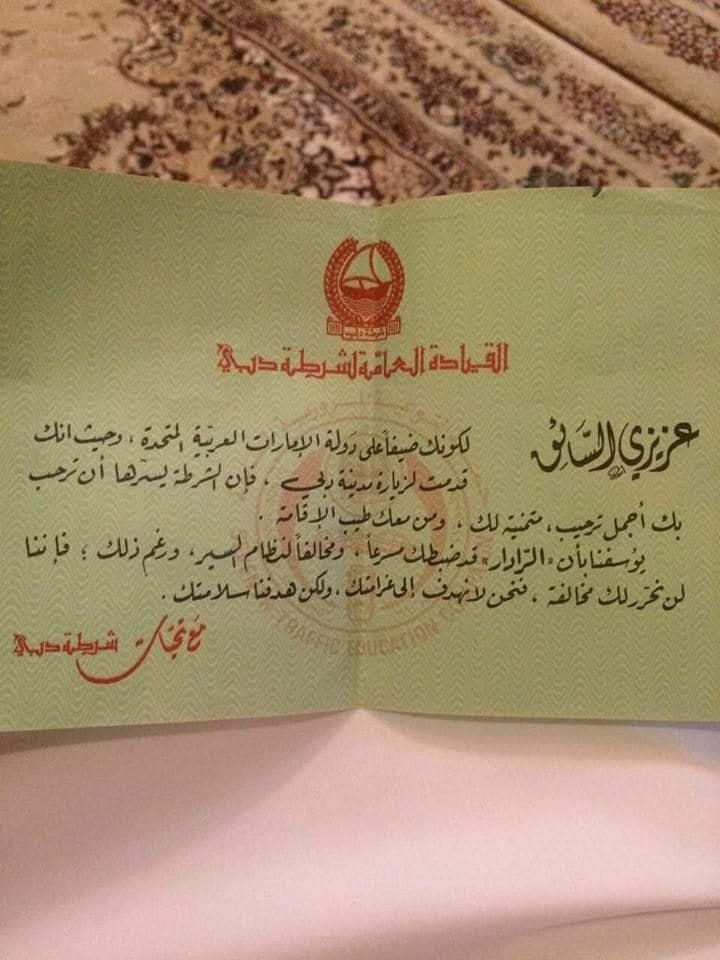 شرطة دبي
القيادة العامة لشرطة دبي
عزيزي السائق
لكونك ضيفاً على دولة الإمارات العربية المتحدة، وحيث انك
قدمت لزيارة مدينة دبي، فإن الشرطة يسرّها أن ترحب
بك أجمل ترحيب، متمنية لك، ومن معك طيب الإقامة.
يؤسفنا بأن «الرّادار» قد ضبطك مسرعاً، ومخالفاً لنظام السير، ورغم ذلك؛ فإننا
لن نحرّر لك مخالفة، فنحن لا نهدف إلى غرامتك، ولكن هدفنا سلامتك.
مع تحيات شرطة دبي
TRAFFIC EDUCATION